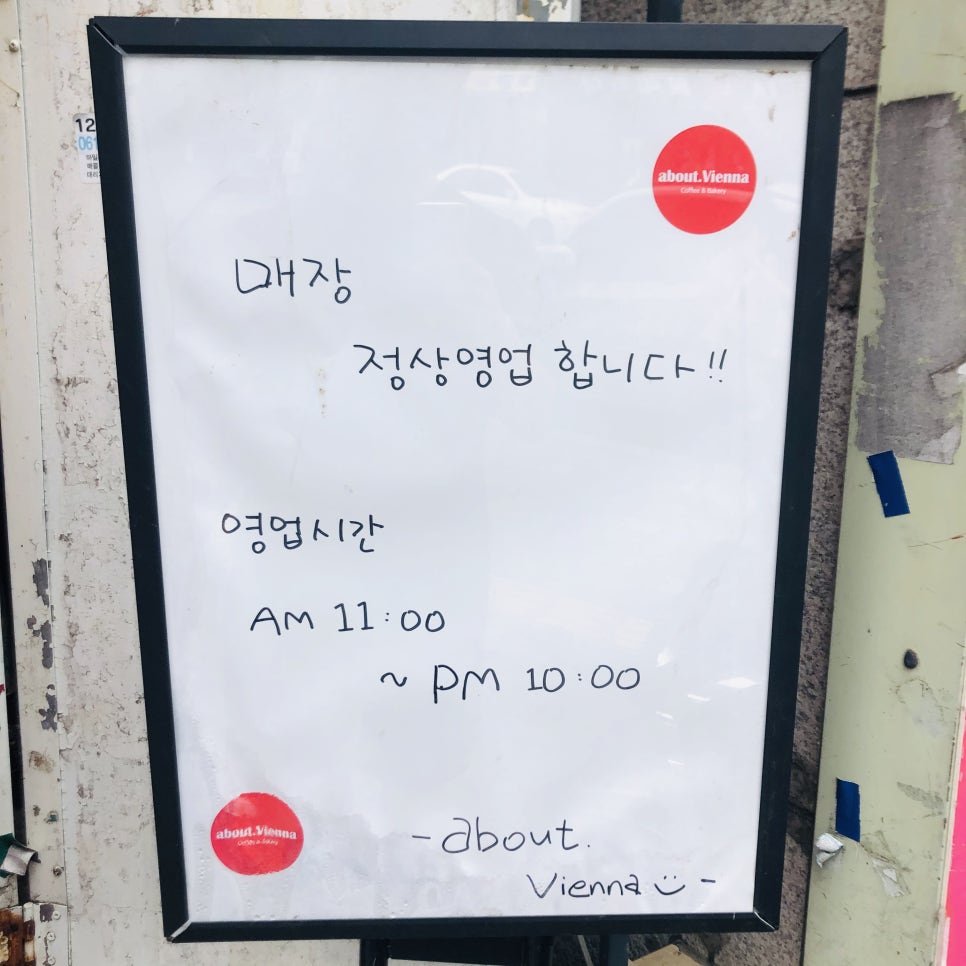 about.Vienna
Coffee & Bakery
매장
정상영업 합니다!!
영업시간
AM 11:00
~ PM 10:00
about.Vienna
Coffee & Bakery
- about.
Vienna -
12
061